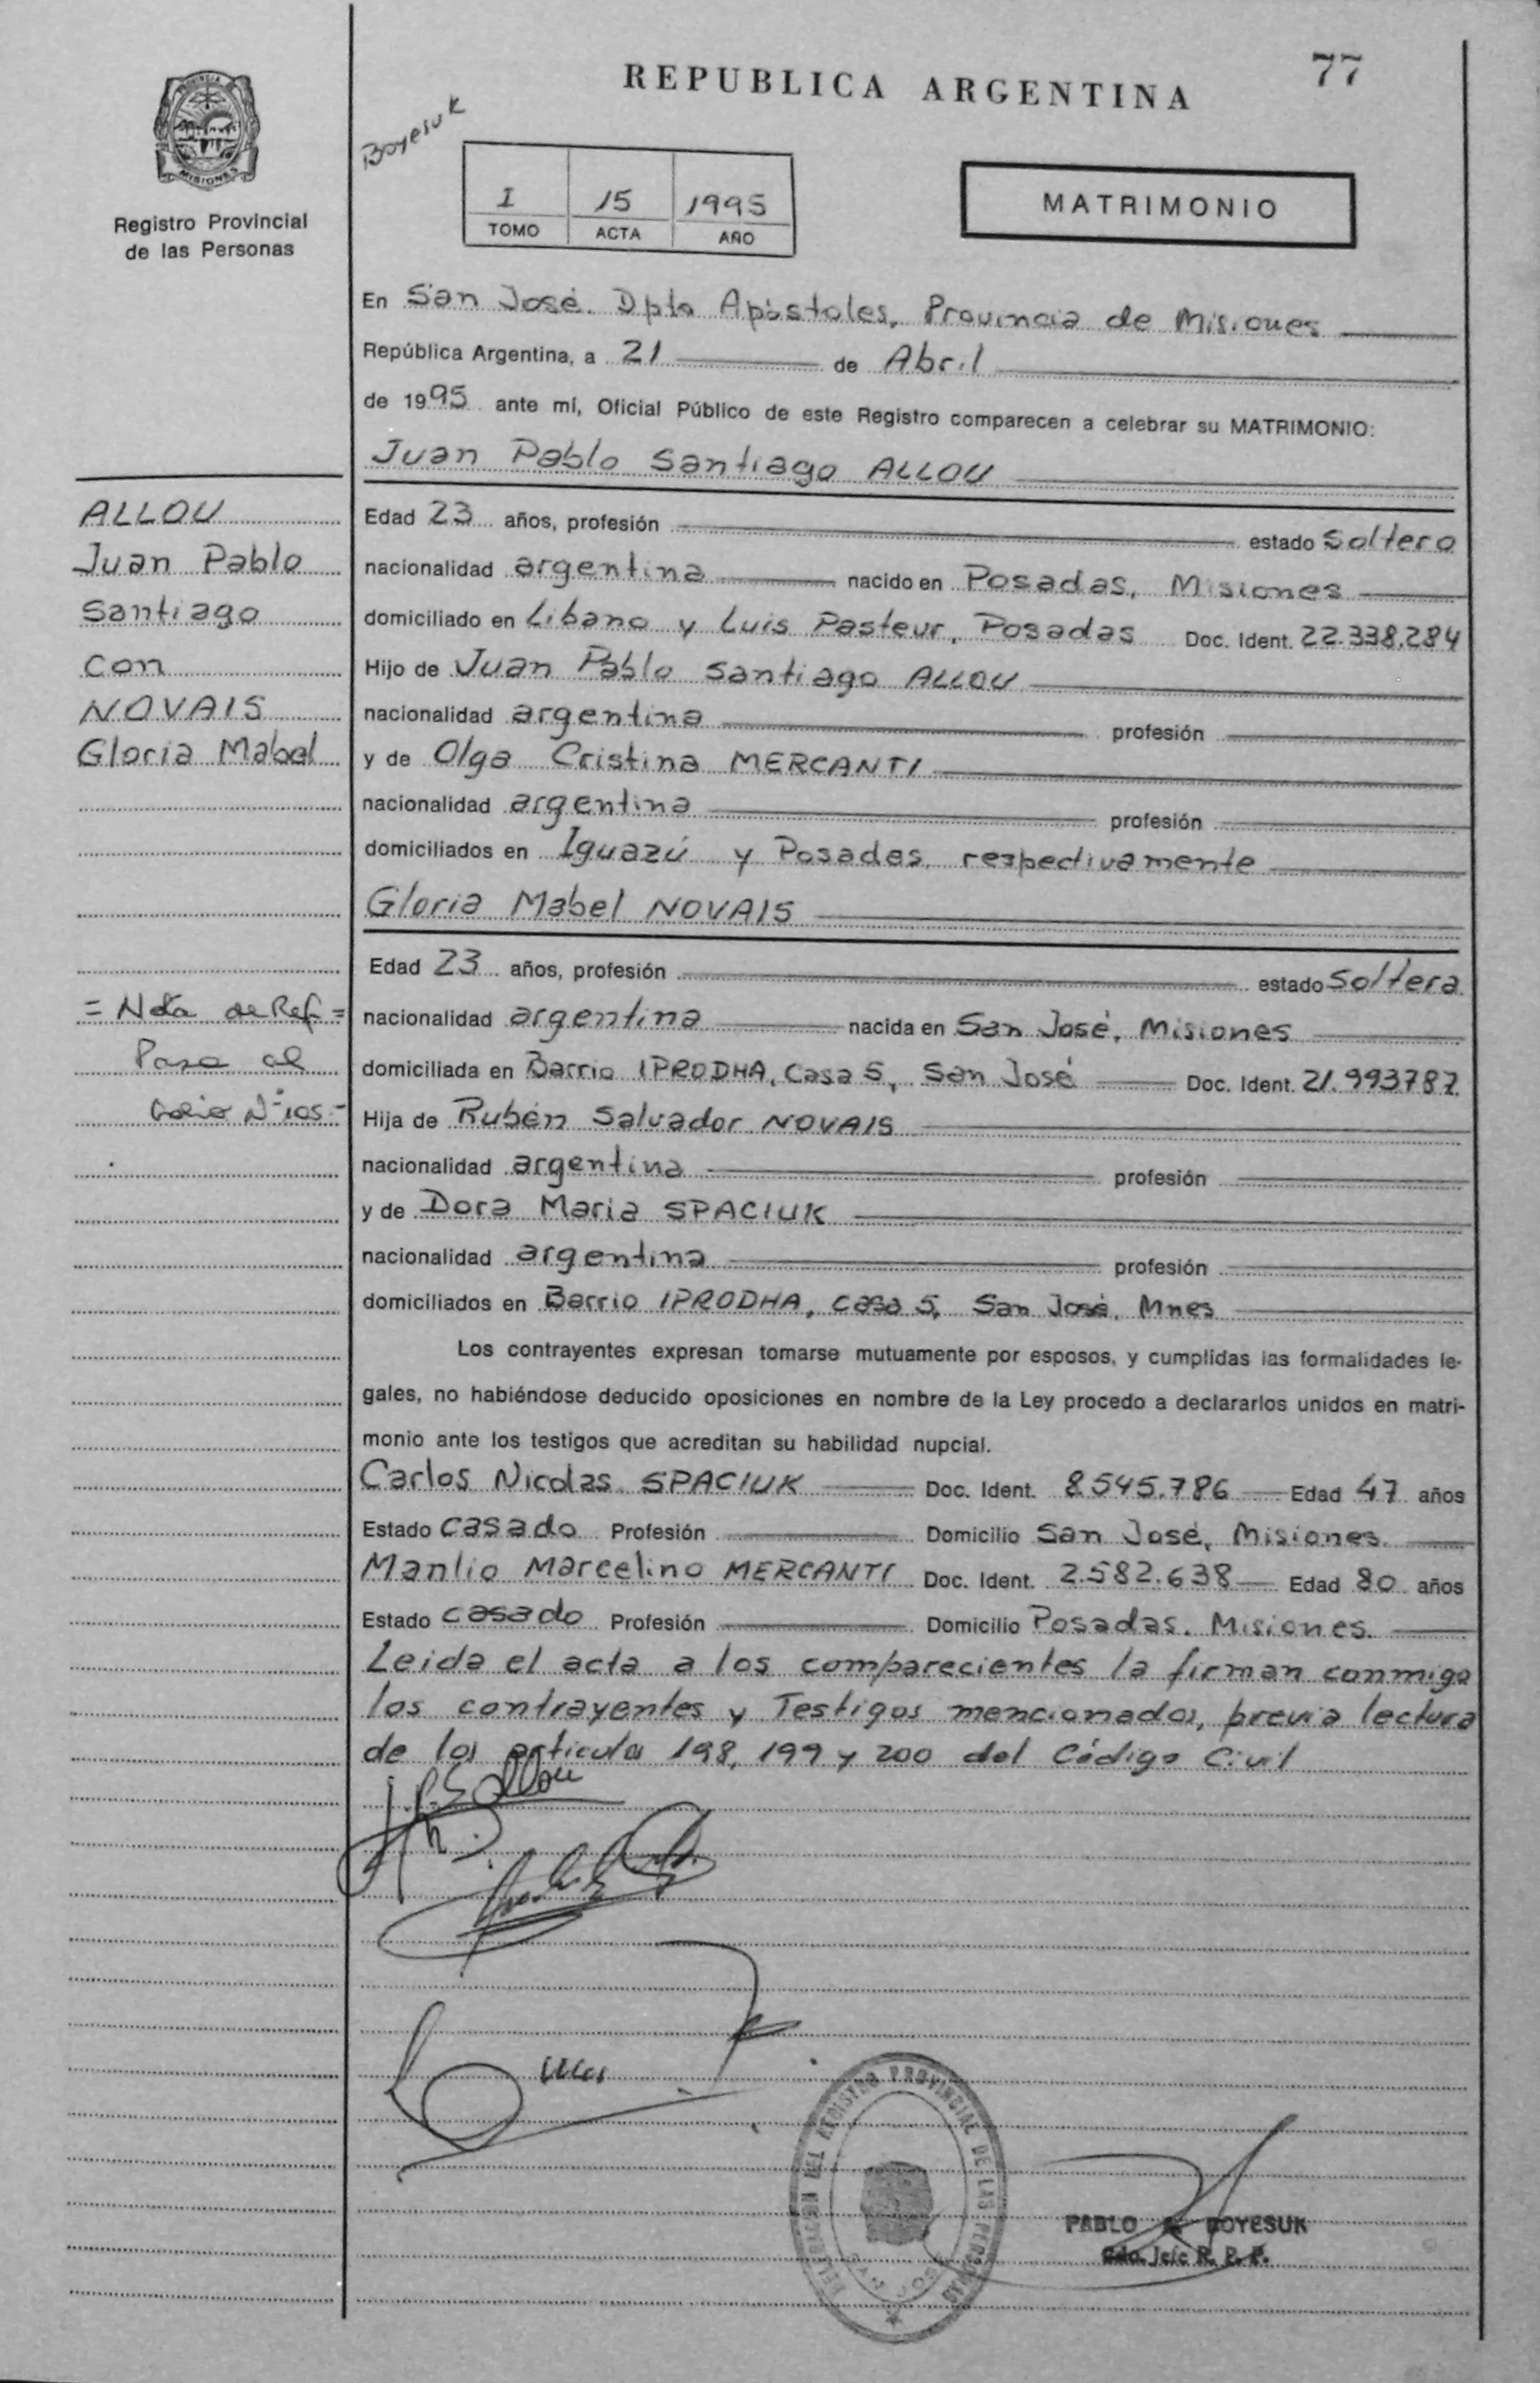 REPUBLICA ARGENTINA
77
PROVINCIA
MISIONES
Registro Provincial
de las Personas
Boyesuk
I 15 1995
TOMO ACTA AÑO
MATRIMONIO
En San José. Dpto Apóstoles, Provincia de Misiones
República Argentina, a 21 de Abril
de 1995 ante mí, Oficial Público de este Registro comparecen a celebrar su MATRIMONIO:
Juan Pablo Santiago ALLOU
ALLOU
Juan Pablo
Santiago
con
NOVAIS
Gloria Mabel
Edad 23 años, profesión estado Soltero
nacionalidad argentina nacido en Posadas, Misiones
domiciliado en Libano y Luis Pasteur, Posadas Doc. Ident. 22.338.284
Hijo de Juan Pablo Santiago ALLOU
nacionalidad argentina profesión
y de Olga Cristina MERCANTI
nacionalidad argentina profesión
domiciliados en Iguazú y Posadas, respectivamente
Gloria Mabel NOVAIS
Edad 23 años, profesión estado Soltera
= Nota de Ref =
Pasa al
folio Nº 105.-
nacionalidad argentina nacida en San José, Misiones
domiciliada en Barrio IPRODHA, Casa 5, San José Doc. Ident. 21.993787
Hija de Rubén Salvador NOVAIS
nacionalidad argentina profesión
y de Dora Maria SPACIUK
nacionalidad argentina profesión
domiciliados en Barrio IPRODHA, casa 5, San José, Mnes
Los contrayentes expresan tomarse mutuamente por esposos, y cumplidas las formalidades le-
gales, no habiéndose deducido oposiciones en nombre de la Ley procedo a declararlos unidos en matri-
monio ante los testigos que acreditan su habilidad nupcial.
Carlos Nicolas SPACIUK Doc. Ident. 8.545.786 Edad 47 años
Estado casado Profesión Domicilio San José, Misiones
Manlio Marcelino MERCANTI Doc. Ident. 2.582.638 Edad 80 años
Estado casado Profesión Domicilio Posadas. Misiones.
Leida el acta a los comparecientes la firman conmigo
los contrayentes y Testigos mencionados, previa lectura
de los articulos 198, 199 y 200 del Código Civil
DELEGACION DEL REGISTRO PROVINCIAL DE LAS PERSONAS
SAN JOSE
PABLO BOYESUK
Gdo. Jefe R. P. P.